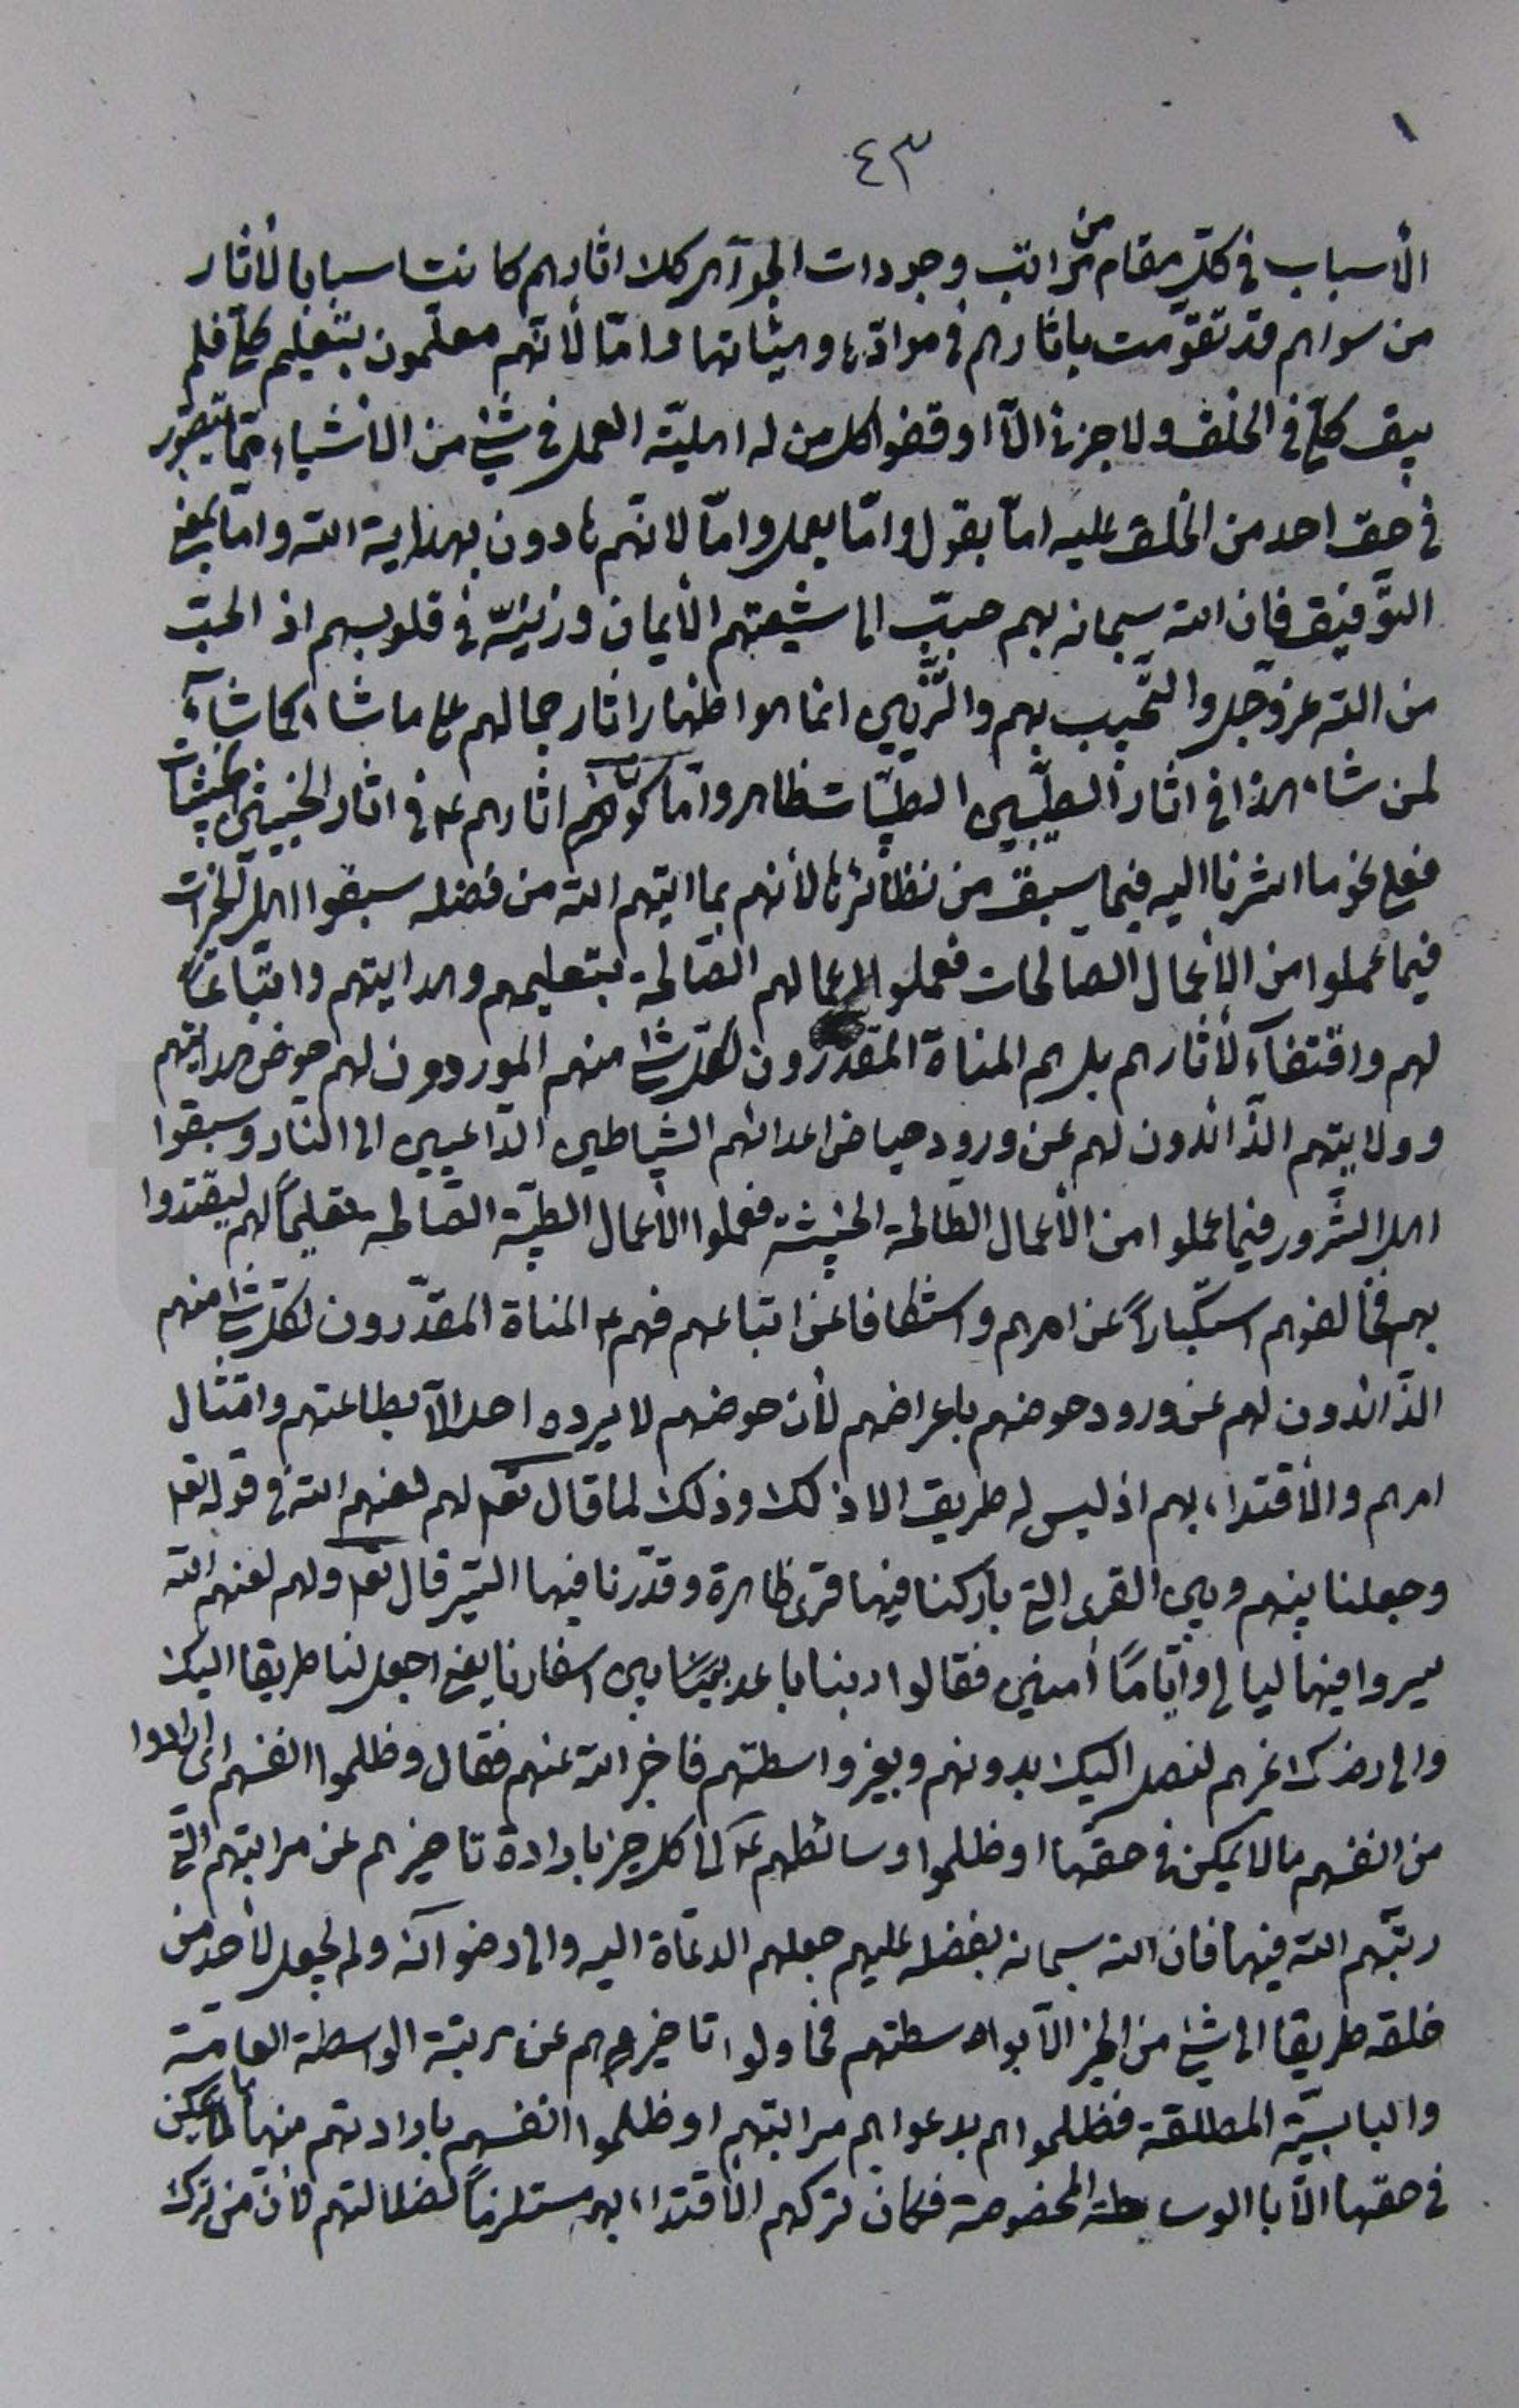 ٤٣
الأسباب فى كل مقام من مراتب وجودات الجواهر كك اثارهم كانت اسبابا لأثار
من سواهم قد تقومت باثارهم فى موادها وهيئاتها واما لأنهم معلمون بتعليم كلى فلم
يبق كلى فى الخلق ولا جزئى الا اوقفوا كل من له اهلية العمل فى شئ من الأشياء مما يتصور
فى حق احد من الخلق عليه اما بقول واما بعمل واما لأنهم هادون بهداية الله واما بمعنى
التوفيق فان الله سبحانه بهم حبب الى شيعتهم الأيمان وزينه فى قلوبهم اذ الحب
من الله عز وجل والتحبيب بهم والتزيين انما هو اظهار اثار جمالهم على ما شاء كما شاء
لمن شاء هذا فى اثار الطيبين الطيبات ظاهر واما كونها اثارهم ع فى اثار الخبيثين الخبيثات
فعلى نحو ما اشرنا اليه فيما سبق من نظائرها لأنهم بما اتيهم الله من فضله سبقوا اهل الخيرات
فيما عملوا من الأعمال الصالحات فعملوا اعمالهم الصالحة بتعليمهم وهدايتهم واتباعا
لهم واقتفاء لأثارهم بل هم المناة المقدرون لكل شئ منهم الموردون لهم حوض هدايتهم
وولايتهم الذائدون لهم عن ورود حياض اعدائهم الشياطين الداعيين الى النار وسبقوا
اهل الشرور فيما عملوا من الأعمال الطالحة الخبيثة فعملوا الأعمال الطيبة الصالحة تعليما لهم ليقتدوا
بهم فخالفوهم استكبارا عن امرهم واستنكافا عن اتباعهم فهم ع المناة المقدرون لكل شئ منهم
الذائدون لهم عن ورود حوضهم باعراضهم لأن حوضهم لا يرده احد الا بطاعتهم وامتثال
امرهم والأقتداء بهم اذ ليس له طريق الا ذلك وذلك لما قال تعالى لهم لعنهم الله فى قوله تعالى
وجعلنا بينهم وبين القرى التى باركنا فيها قرى ظاهرة وقدرنا فيها السير قال تعالى ولهم لعنهم الله
سيروا فيها ليالى واياما امنين فقالوا ربنا باعد بيننا بين اسفارنا يعنى اجعل لنا طريقا اليك
والى رضاك غيرهم لنصل اليك بدونهم وبغير واسطتهم فاخبر الله عنهم فقال وظلموا انفسهم اى ارادوا
من انفسهم ما لا يمكن فى حقها او ظلموا وسائطهم ع الى كل خير بارادة تاخيرهم عن مراتبهم التى
رتبهم الله فيها فان الله سبحانه بفضله عليهم جعلهم الدعاة اليه والى رضوانه ولم يجعل لأحد من
خلقه طريقا الى شئ من الخير الا بواسطتهم فحاولوا تاخيرهم عن رتبة الواسطة العامة
والبابية المطلقة فظلموهم بدعواهم مراتبهم او ظلموا انفسهم بارادتهم منها ما لا يمكن
فى حقها الا بالوساطة المخصوصة فكان تركهم الأقتداء بهم مستلزما لضلالتهم لأن من ترك